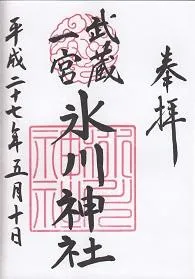 奉拝
武蔵
一宮
氷川神社
平成二十七年五月十日